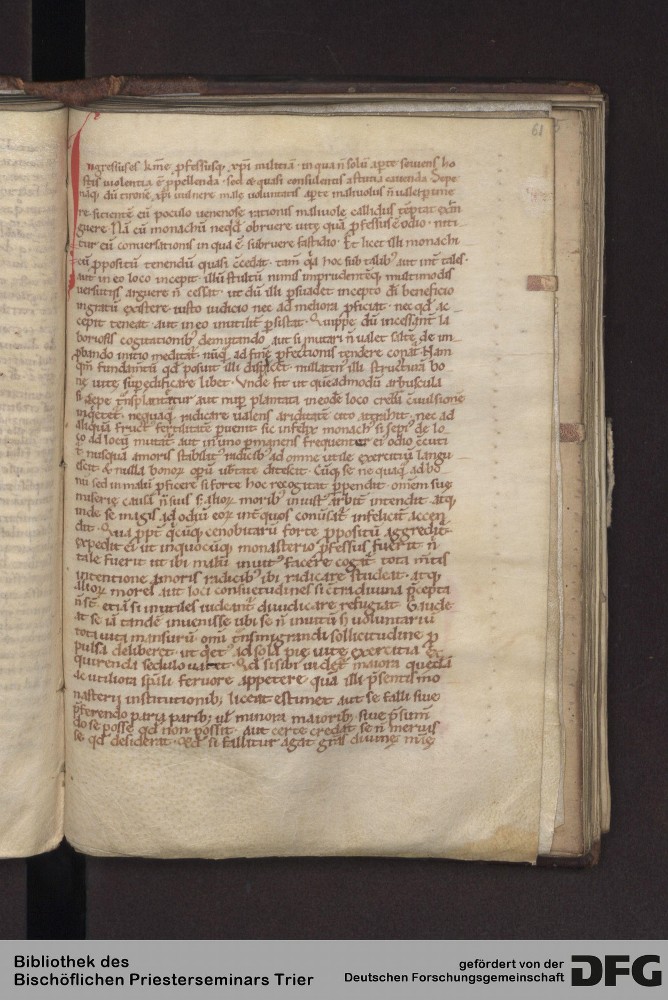 61
Ingressus es km̄e p̄fessusq; xp̄i militiā · in qua n̄ solū apte seviens ho
stis violentia ē ppellenda · sed & quasi consulentis astutia cavenda. Sepe
namq; dū tironē xp̄i vulnere male voluntatis apte malivolus n̄ valet pime
re · sicientē eū poculo venenose rationis malivole callidus tēptat extin
guere. Nā cū monachū nequit obruere vite quā p̄fessus ē odio · niti
tur eū conversationis in qua ē subruere fastidio. Et licet illi monachi
cū p̄positū tenendū quasi c̄cedat · tam̄ qa hoc sub talib; aut int̄ tales ·
aut in eo loco incepit · illū stultū nimis imprudentēq; multimodis
versutiis arguere n̄ cessat · ut dū illi p̄suadet incepto d̄i beneficio
ingratū existere · iusto iudicio nec ad meliora pficiat · nec qd ac
cepit teneat · aut in eo inutilit̄ psistat. Quippe dū incessant̄ la
boriosis cogitationib; de mutando aut si mutari n̄ valet saltē de im
pbando initio meditat̄ · nūq; ad finē pfectionis tendere conat̄. Nam
qm̄ fundamtū qd posuit illi displicet · nullaten; illi structurā bo
ne vite supedificare libet. Unde fit ut quēadmodū arbuscula
si sepe t̄nsplantet̄ur aut nup plantata in eodē loco crebra c̄vulsione
inq̄etet̄ · nequaq; radicare valens ariditatē cito attrahit · nec ad
aliquā fruct; fertilitatē pvenit · sic infelix monach; si sepi; de lo
co ad locū mutat̄ · aut in uno pmanens frequenter ei; odio c̄cuti
t̄ · nusquā amoris stabilit; radicib; ad omne utile exercitiū langu
escit · & nulla bonor opū ubtate ditescit. Cūq; se ne quaq; ad bo
nū sed in malū pficere si forte hoc recogitat ppendit · omnem sue
miserie causā n̄ suis s; alior morib; iniust; arbit̄ intendit · atq;
inde se magis ad odiū eor int̄ quos conv̄sat̄ infelicit̄ accen
dit. Quapropt̄ qcūq; cenobitarū forte ppositū aggredit̄ ·
expedit ei ut in quocūq; monasterio pfessus fuerit · n̄
tale fuerit ut ibi malū invit; facere cogat̄ · tota m̄tis
intentione amoris radicib; ibi radicare studeat · atq;
alior mores aut loci consuetudines si c̄tra divina p̄cepta
n̄ st̄ · etiā si inutiles videant̄ · diiudicare refugiat. Gaude
at se iā tandē invenisse ubi se n̄ invitū s; voluntariū
tota vita mansurū · omi t̄nsmigrandi sollicitudine p
pulsa deliberet · ut quiet; ad sola pie vite exercitia ex
quirenda sedulo vacet. Qd si sibi videt̄ maiora quedā
ac utiliora spūali fervore appetere quā illi p̄sentis mo
nasterii institutionib; liceat · estimet aut se falli sive
p̄ferendo paria parib; vl̄ minora maiorib; sive p̄sum
do se posse qd non possit · aut certe credat se n̄ meruis
se qd desiderat. Qd si fallitur agat gr̄as divine mīe
Bibliothek des
Bischöflichen Priesterseminars Trier
gefördert von der
Deutschen Forschungsgemeinschaft
DFG